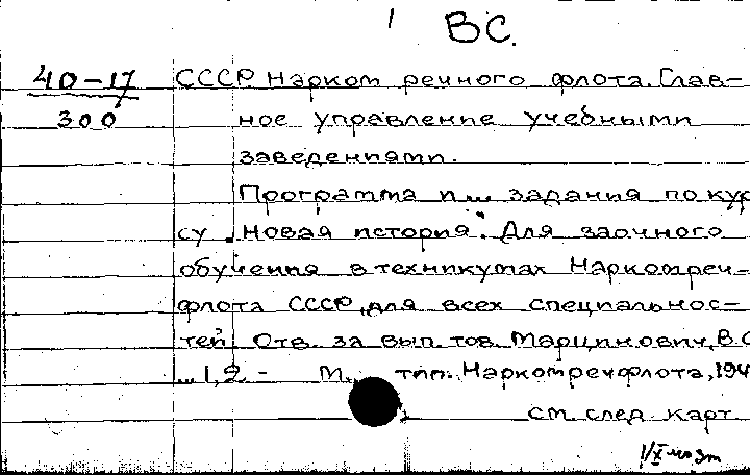 ВС.
40-17 СССР Нарком речного флота. Глав-
300 ное управление учебными
заведениями.
Программа и... задания по кур
су „Новая история". Для заочного
обучения в техникумах Наркомреч-
флота СССР, для всех специальнос-
тей. Отв. за вып. тов. Марцинович, В.С
... 1,2. - М. тип. Наркомречфлота, 194
см. след. карт